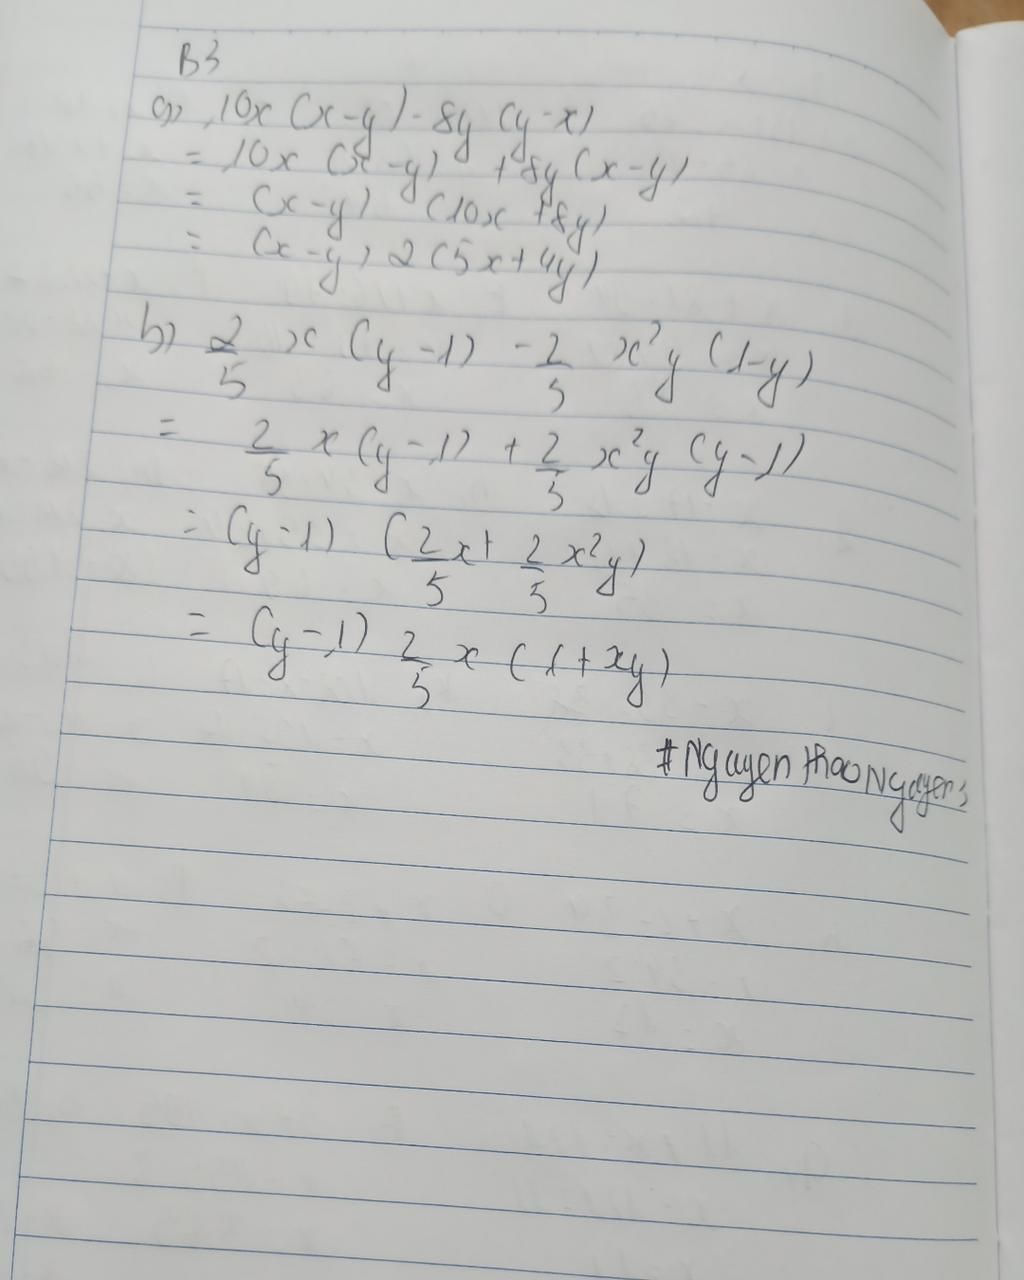 B3
a) 10x (x-y) - 8y (y-x)
= 10x (x-y) + 8y (x-y)
= (x-y) (10x + 8y)
= (x-y) 2 (5x + 4y)
b) 2/5 x (y-1) - 2/5 x²y (1-y)
= 2/5 x (y-1) + 2/5 x²y (y-1)
= (y-1) (2/5 x + 2/5 x²y)
= (y-1) 2/5 x (1 + xy)
#Nguyen thao